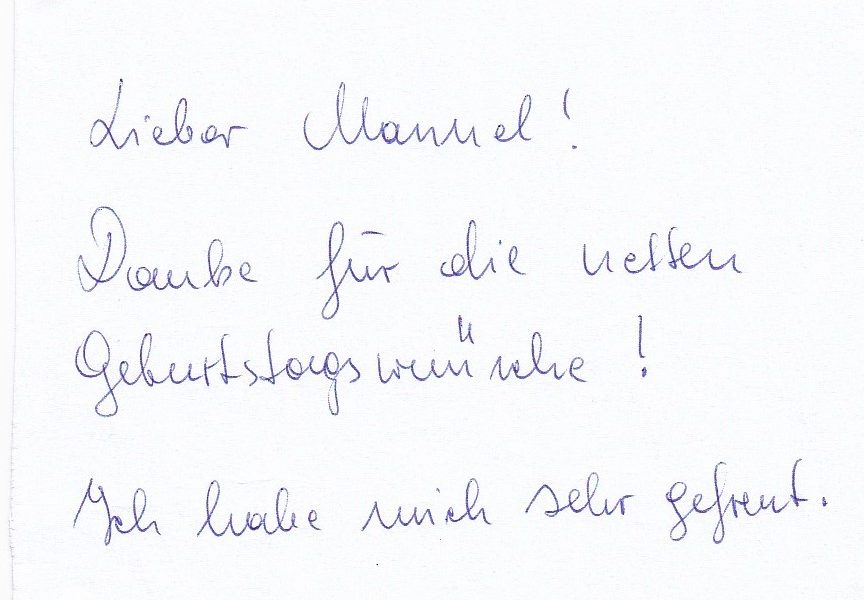 Lieber Manuel!
Danke für die netten
Geburtstagswünsche!
Ich habe mich sehr gefreut.